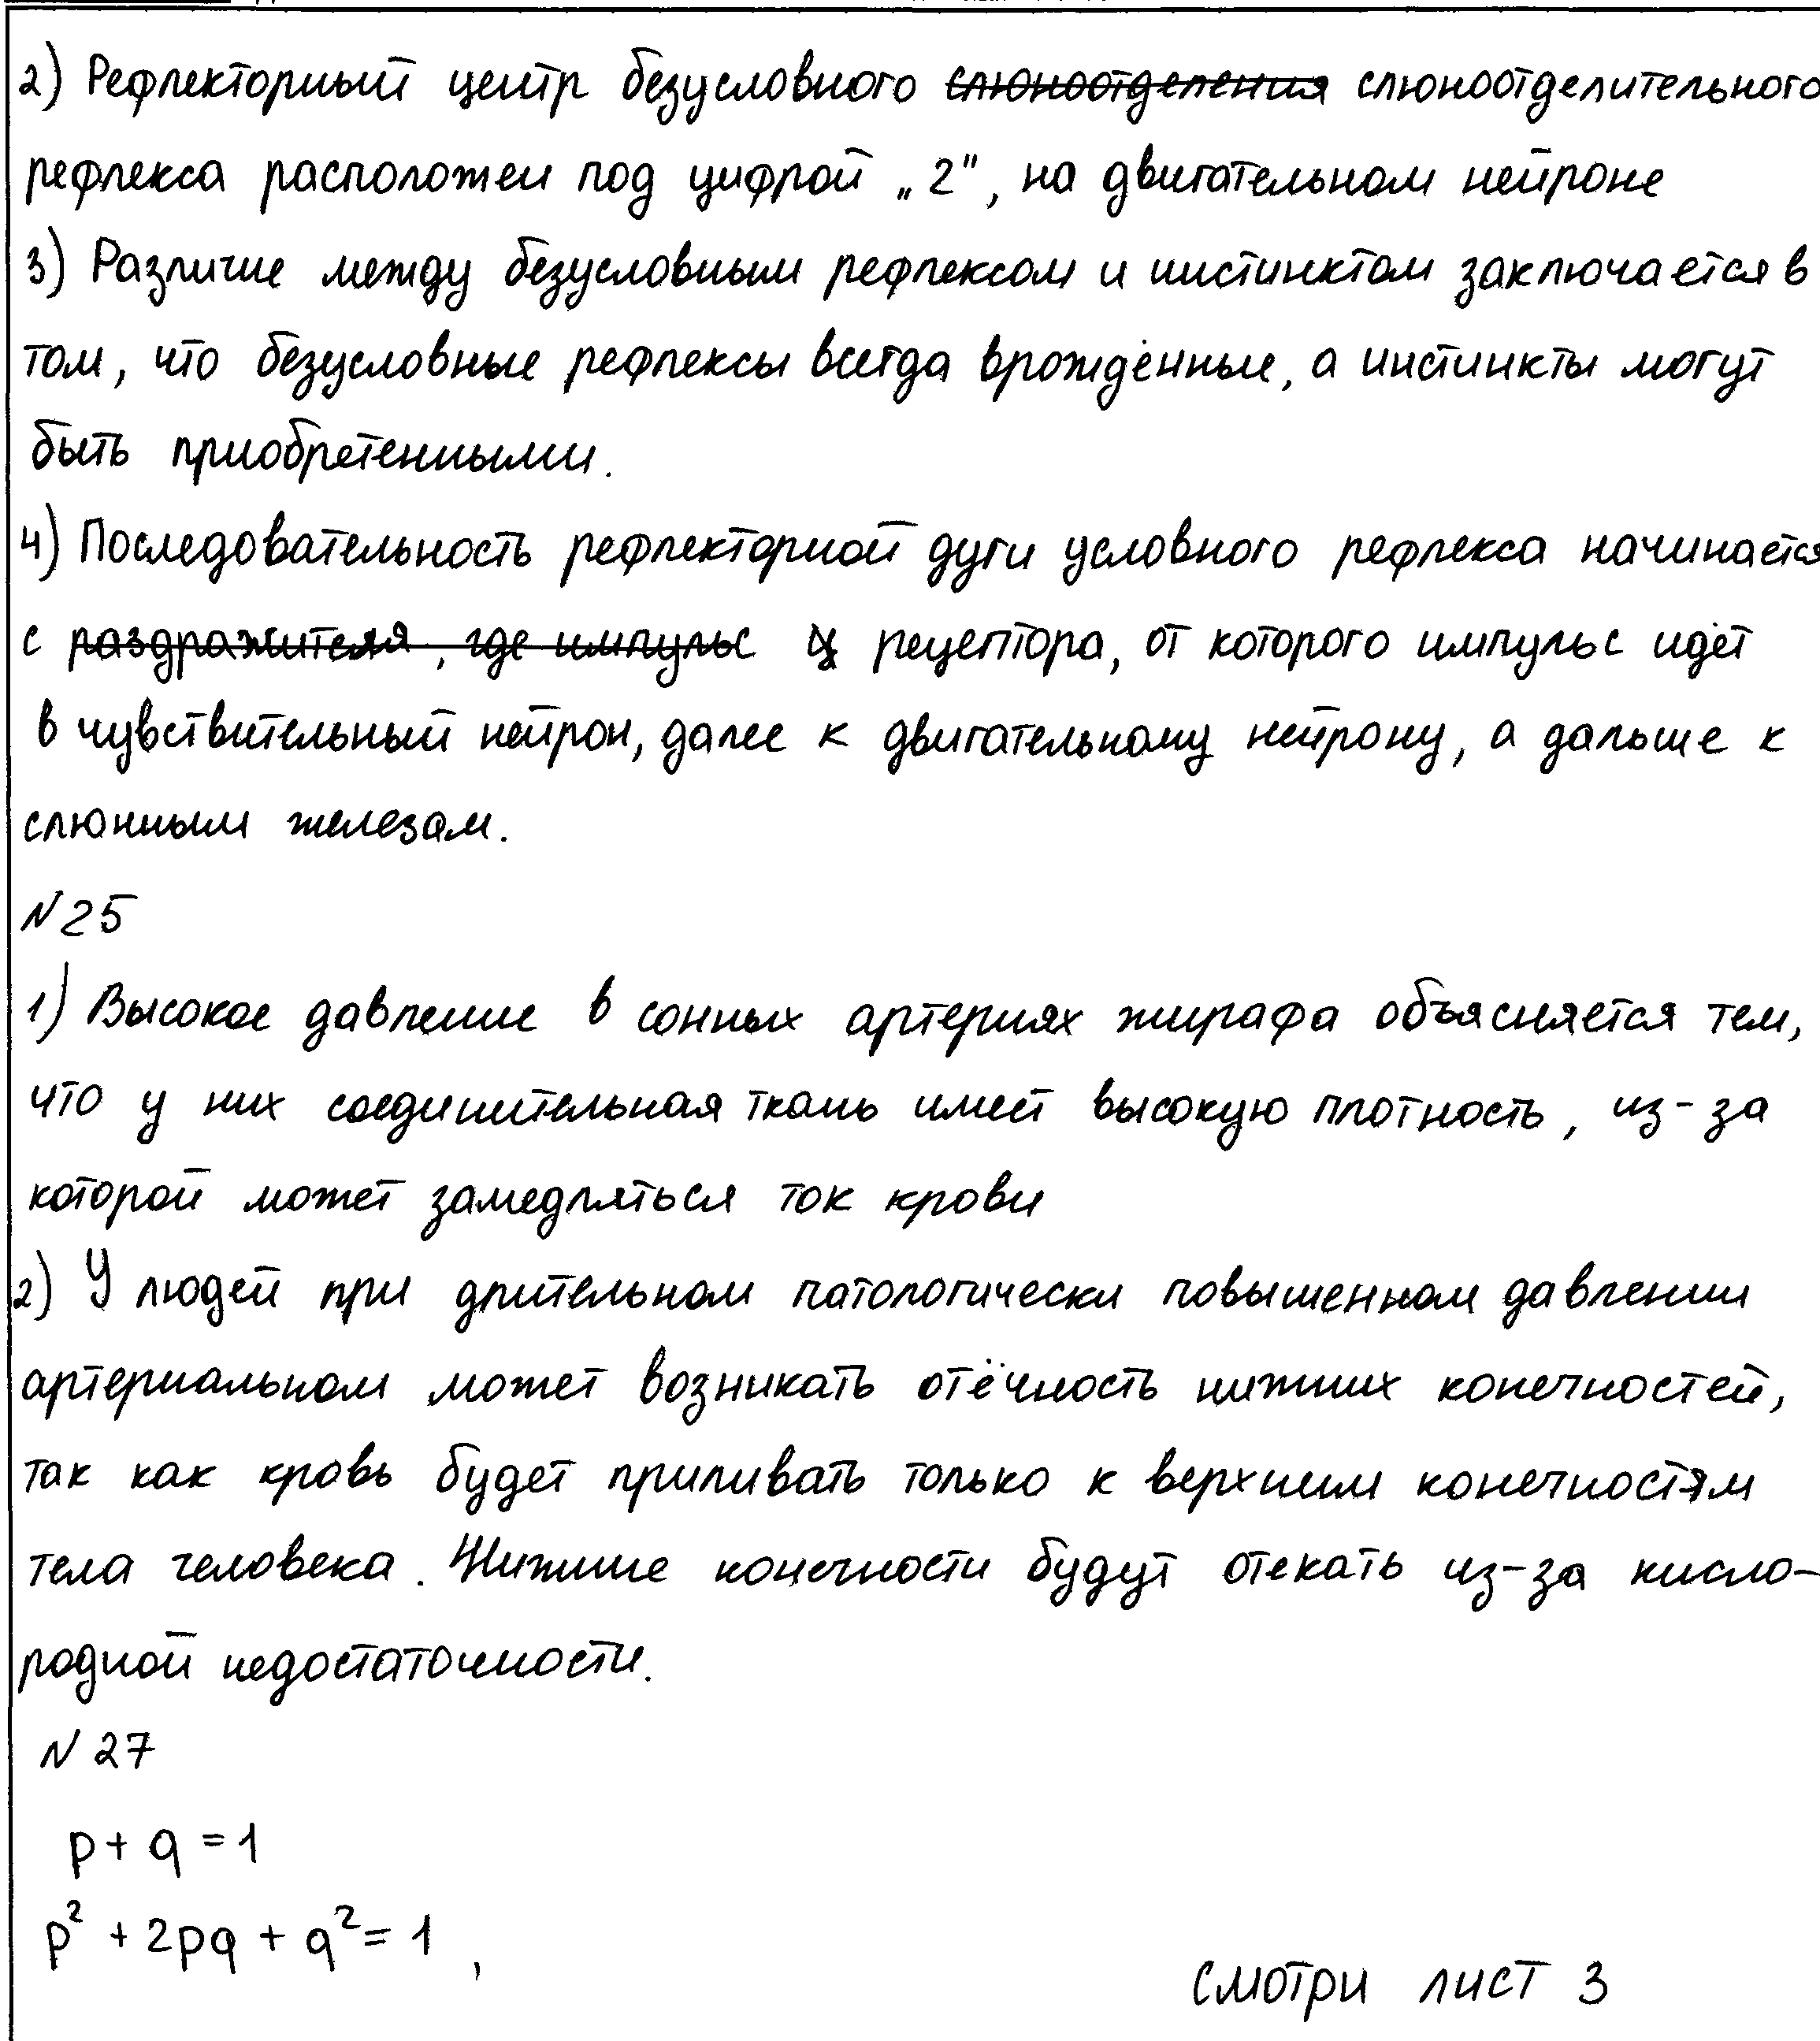 2) Рефлекторный центр безусловного слюноотделения слюноотделительного
рефлекса расположен под цифрой „2", на двигательном нейроне
3) Различие между безусловным рефлексом и инстинктом заключается в
том, что безусловные рефлексы всегда врождённые, а инстинкты могут
быть приобретенными.
4) Последовательность рефлекторной дуги условного рефлекса начинается
с раздражителя, где импульс рецептора, от которого импульс идёт
в чувствительный нейрон, далее к двигательному нейрону, а дальше к
слюнным железам.
N25
1) Высокое давление в сонных артериях жирафа объясняется тем,
что у них соединительная ткань имеет высокую плотность, из-за
которой может замедляться ток крови
2) У людей при длительном патологически повышенном давлении
артериальном может возникать отёчность нижних конечностей,
так как кровь будет приливать только к верхним конечностям
тела человека. Нижние конечности будут отекать из-за кисло-
родной недостаточности.
N27
p + q = 1
p² + 2pq + q² = 1 ,
смотри лист 3